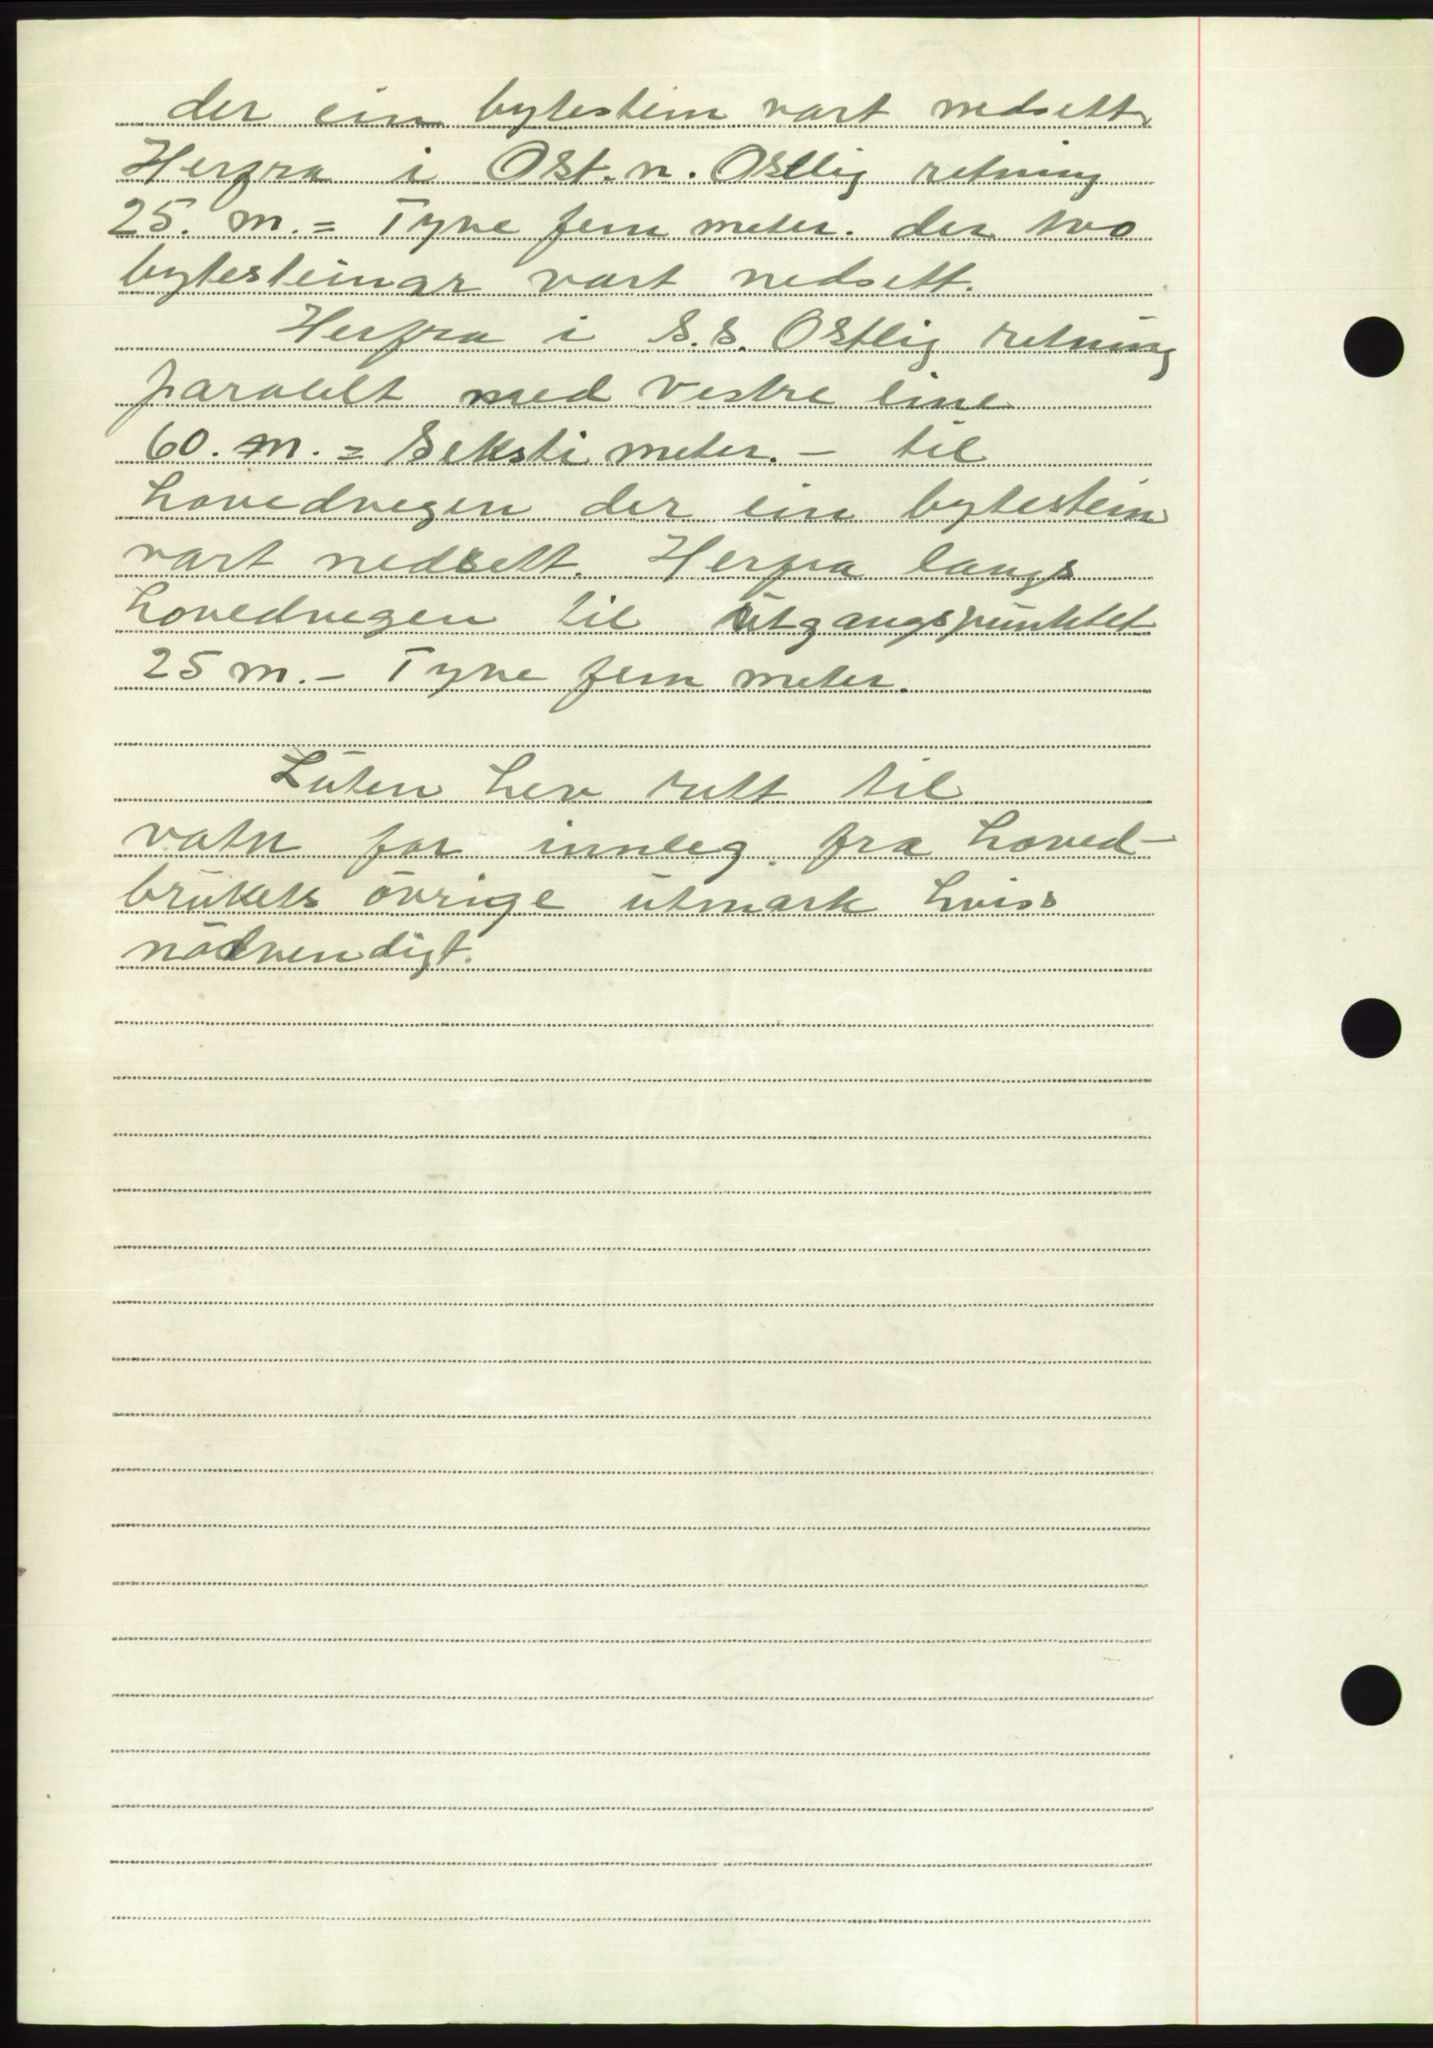 der ein bytestein vart nedsett.
Herfra i Öst. n. Östlig retning
25. m. = Tyve fem meter. der tvo
bytesteinar vart nedsett.
Herfra i S.S. Östlig retning
paralelt med vestre line
60. m. = Seksti meter. – til
hovedvegen der ein bytestein
vart nedsett. Herfra langs
hovedvegen til utgangspunktet
25 m. – Tyve fem meter.
Luten hev rett til
vatn for innleg fra hoved-
brukets övrige utmark hviss
nödvendigt.